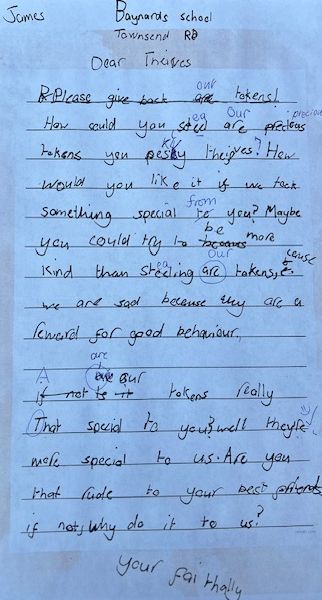 James Baynards school
Townsend RD
Dear Theives
Please give back are our tokens!
How could you steel ea are Our precious precious
tokens you pesky ky theives? How
would you like it if we took
something special to from you? Maybe
you could try to became be more
kind than steeling ea are our tokens, cause
we are sad because they are a
reward for good behaviour,
are
A our
If not is it tokens really
That special to you? well they're
more special to us. Are you
that rude to your best friends
if not, why do it to us?
your faithally